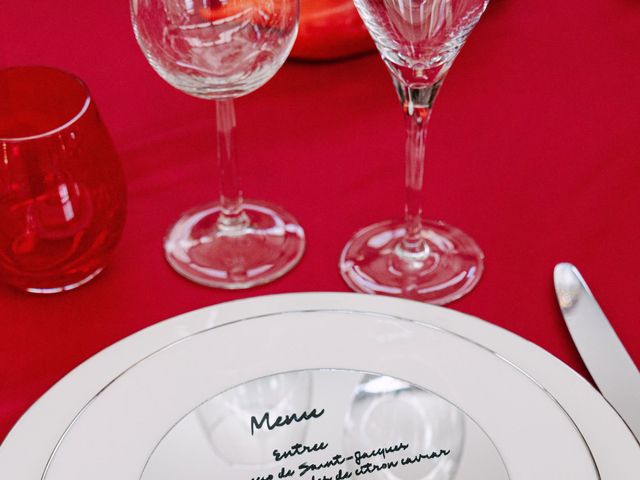 Menu
Entree
de Saint-Jacques
de citron caviar